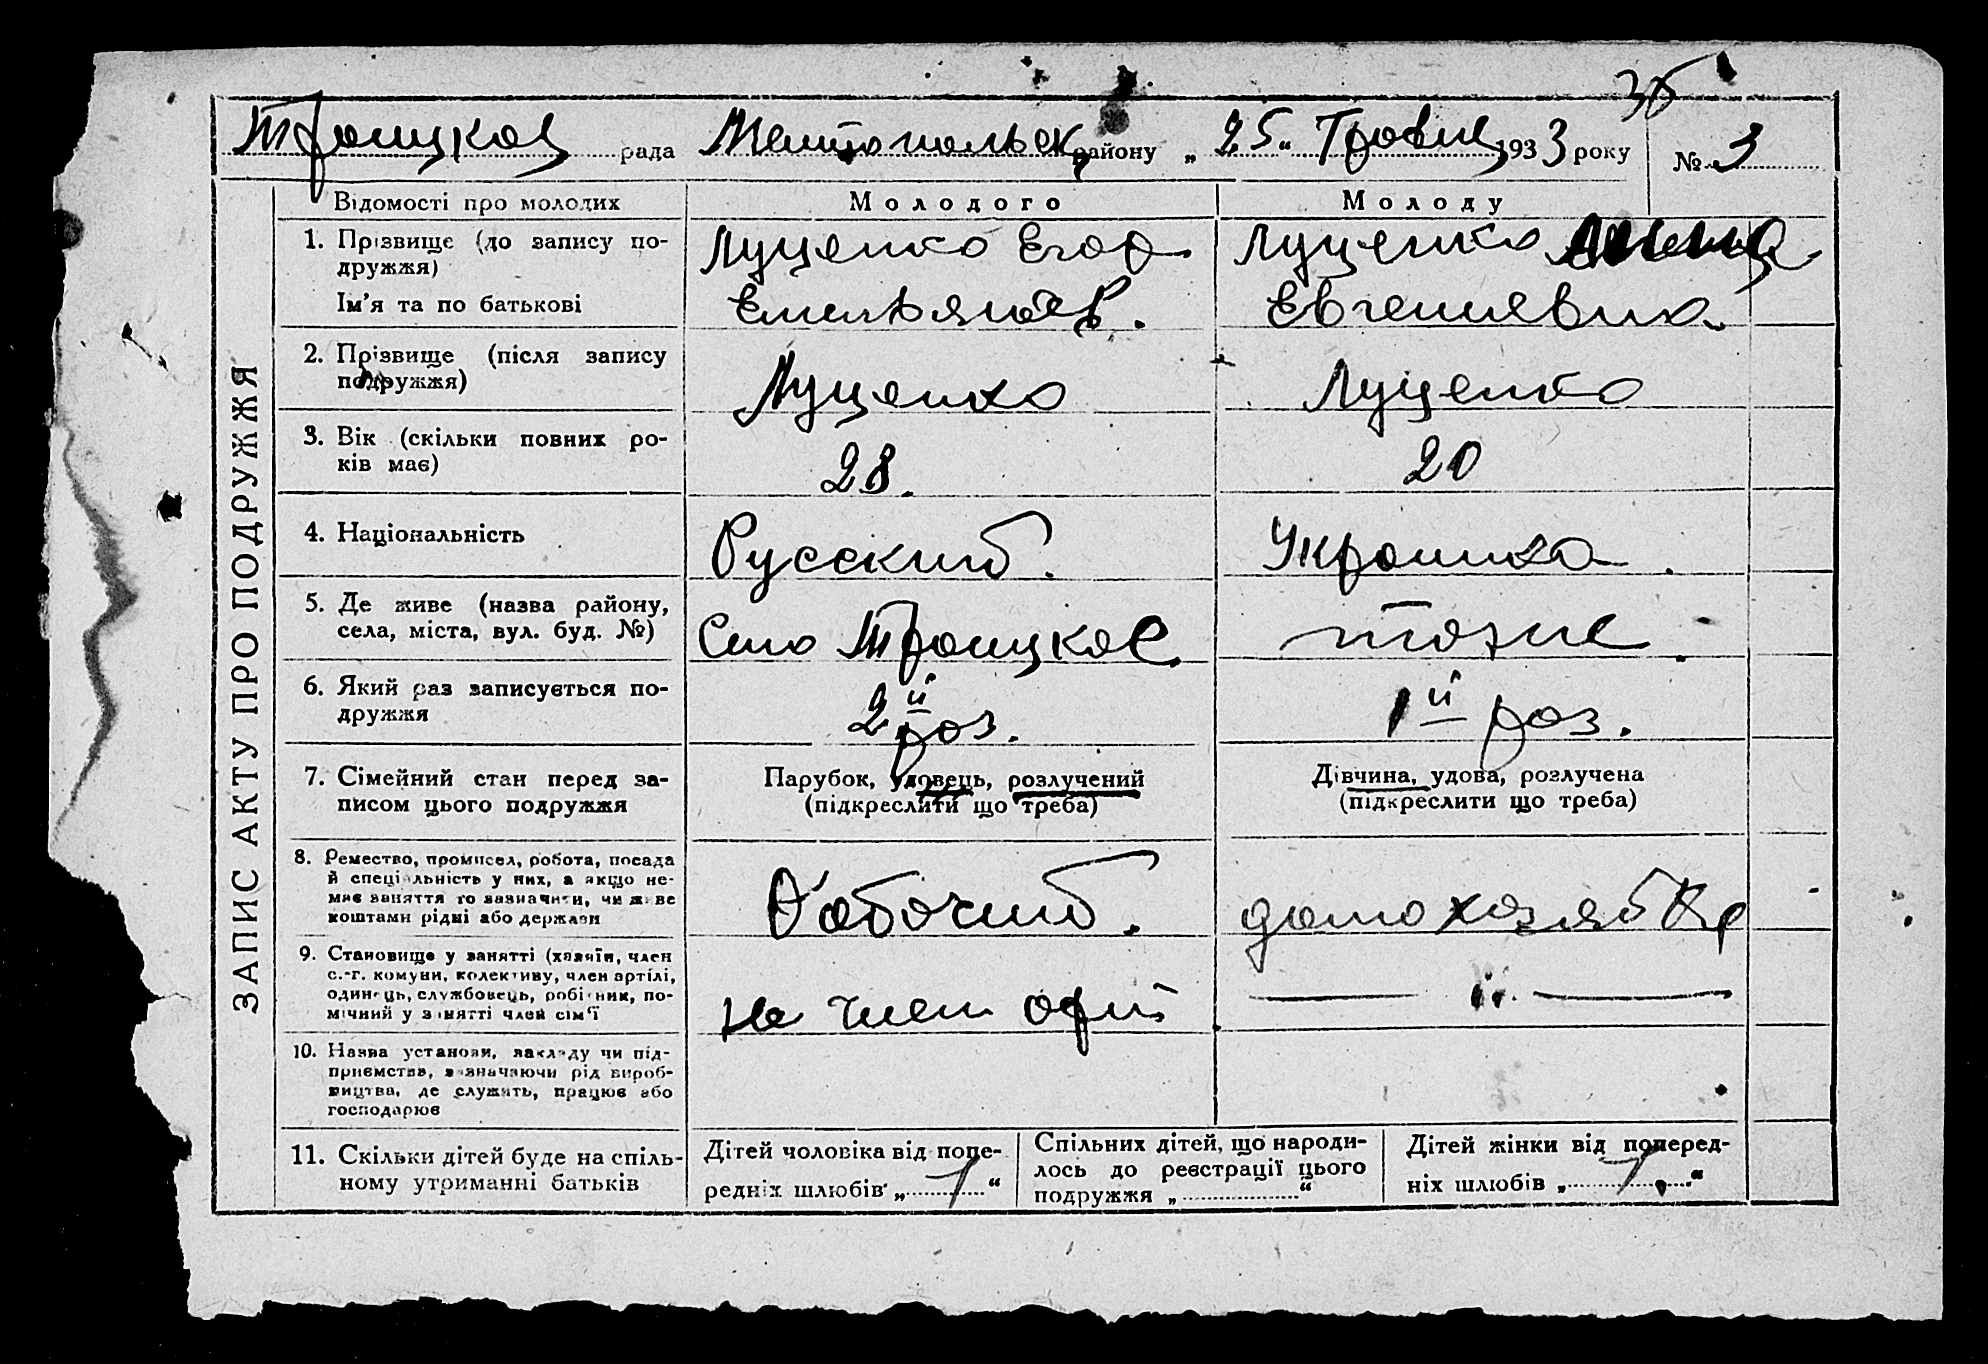 35
Троицкая рада Мелитопольск району „ 25 " Травня 1933 року № 3
ЗАПИС АКТУ ПРО ПОДРУЖЖЯ
Відомості про молодих Молодого Молоду
1. Прізвище (до запису по-
дружжя)
Ім'я та по батькові
Луценко Егор
Емельянов.
Луценко
Евгениевна
2. Прізвище (після запису
подружжя)
Луценко
Луценко
3. Вік (скільки повних ро-
ків має)
28.
20
4. Національність
Русский.
Украинка.
5. Де живе (назва району,
села, міста, вул. буд. №)
Село Троицкое.
тоже.
6. Який раз записується по-
дружжя
2й раз.
1й раз.
7. Сімейний стан перед за-
писом цього подружжя
Парубок, удовець, розлучений
(підкреслити що треба)
Дівчина, удова, розлучена
(підкреслити що треба)
8. Ремество, промисел, робота, посада
й спеціальність у них, а якщо не-
має заняття то зазначити, чи живе
коштами рідні або держави
Рабочий.
домохозяйка
9. Становище у занятті (хазяїн, член
с.-г. комуни, колективу, член артілі,
одинець, службовець, робітник, по-
мічний у занятті член сім'ї
не член
— „ —
10. Назва установи, закладу чи під-
приємства, зазначаючи рід вироб-
ництва, де служить, працює або
господарює
11. Скільки дітей буде на спіль-
ному утриманні батьків
Дітей чоловіка від попе-
редніх шлюбів „ 1 "
Спільних дітей, що народи-
лось до реєстрації цього
подружжя „ "
Дітей жінки від поперед-
ніх шлюбів „ "